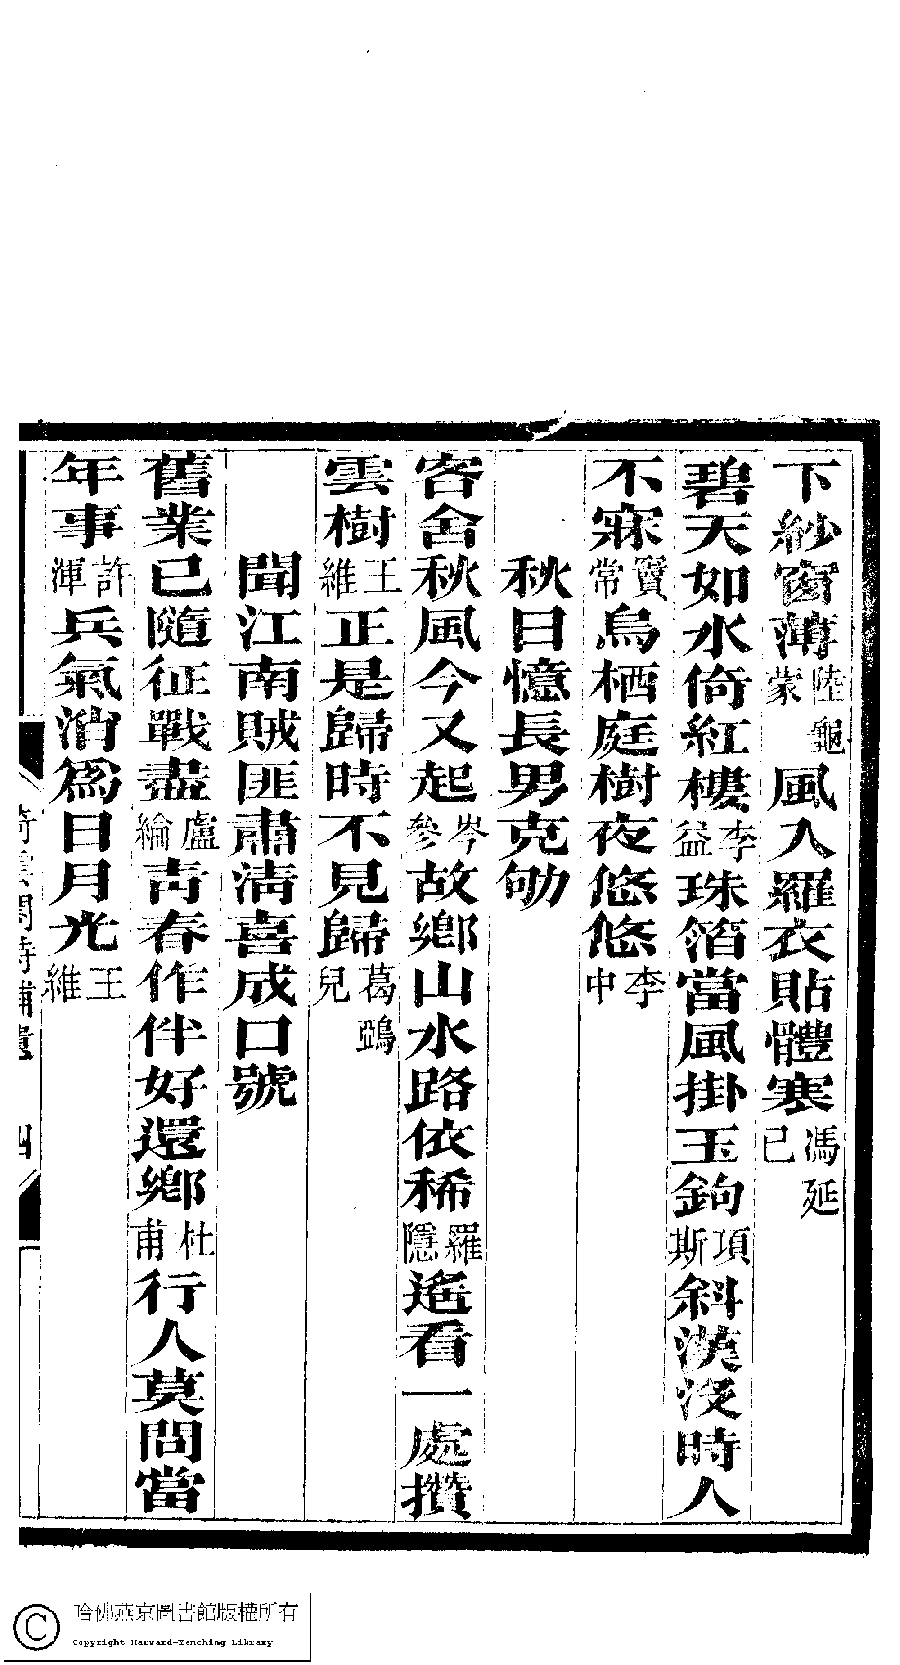 下紗窗薄陸龜蒙風入羅衣貼體寒馮延已
碧天如水倚紅樓李益珠箔當風掛玉鉤項斯斜漢沒時人
不寐竇常烏栖庭樹夜悠悠李中
秋日憶長男克劬
客舍秋風今又起岑參故鄉山水路依稀羅隱遙看一處攢
雲樹王維正是歸時不見歸葛鵶兒
聞江南賊匪肅清喜成口號
舊業已隨征戰盡盧綸青春作伴好還鄉杜甫行人莫問當
年事許渾兵氣消為日月光王維
綺雲閣詩補遺 四
哈佛燕京圖書館版權所有
Copyright Harvard-Yenching Library